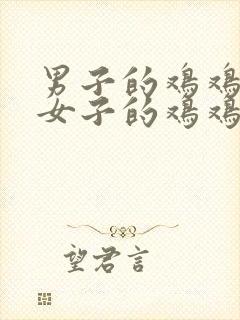 男子的鸡鸡
女子的鸡鸡
望君言